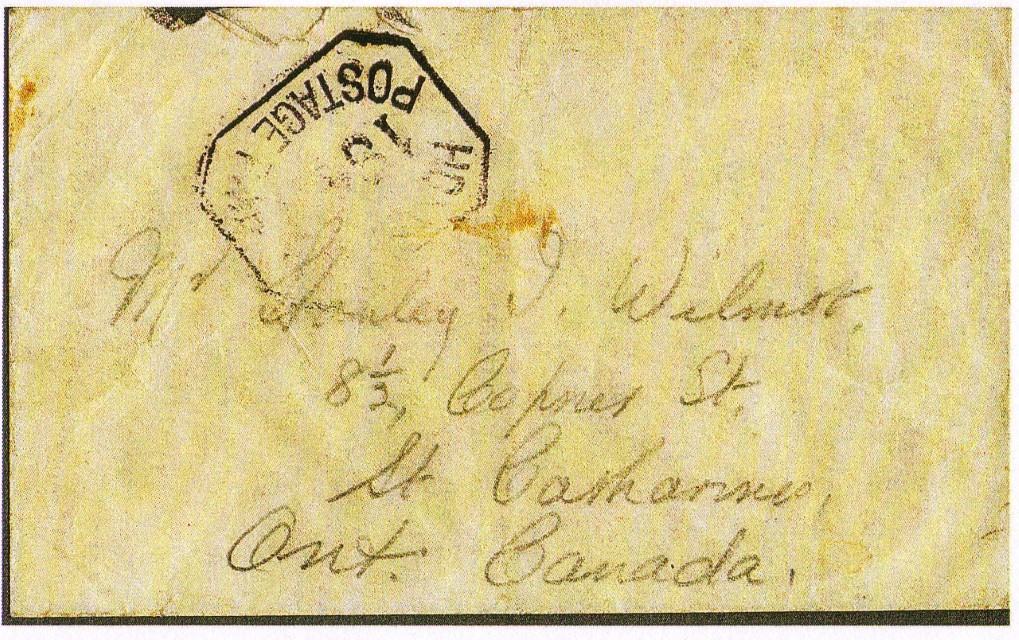 POSTAGE
Mr Stanley J. Wilmott,
8½, Capner St.
St Catharines,
Ont. Canada.